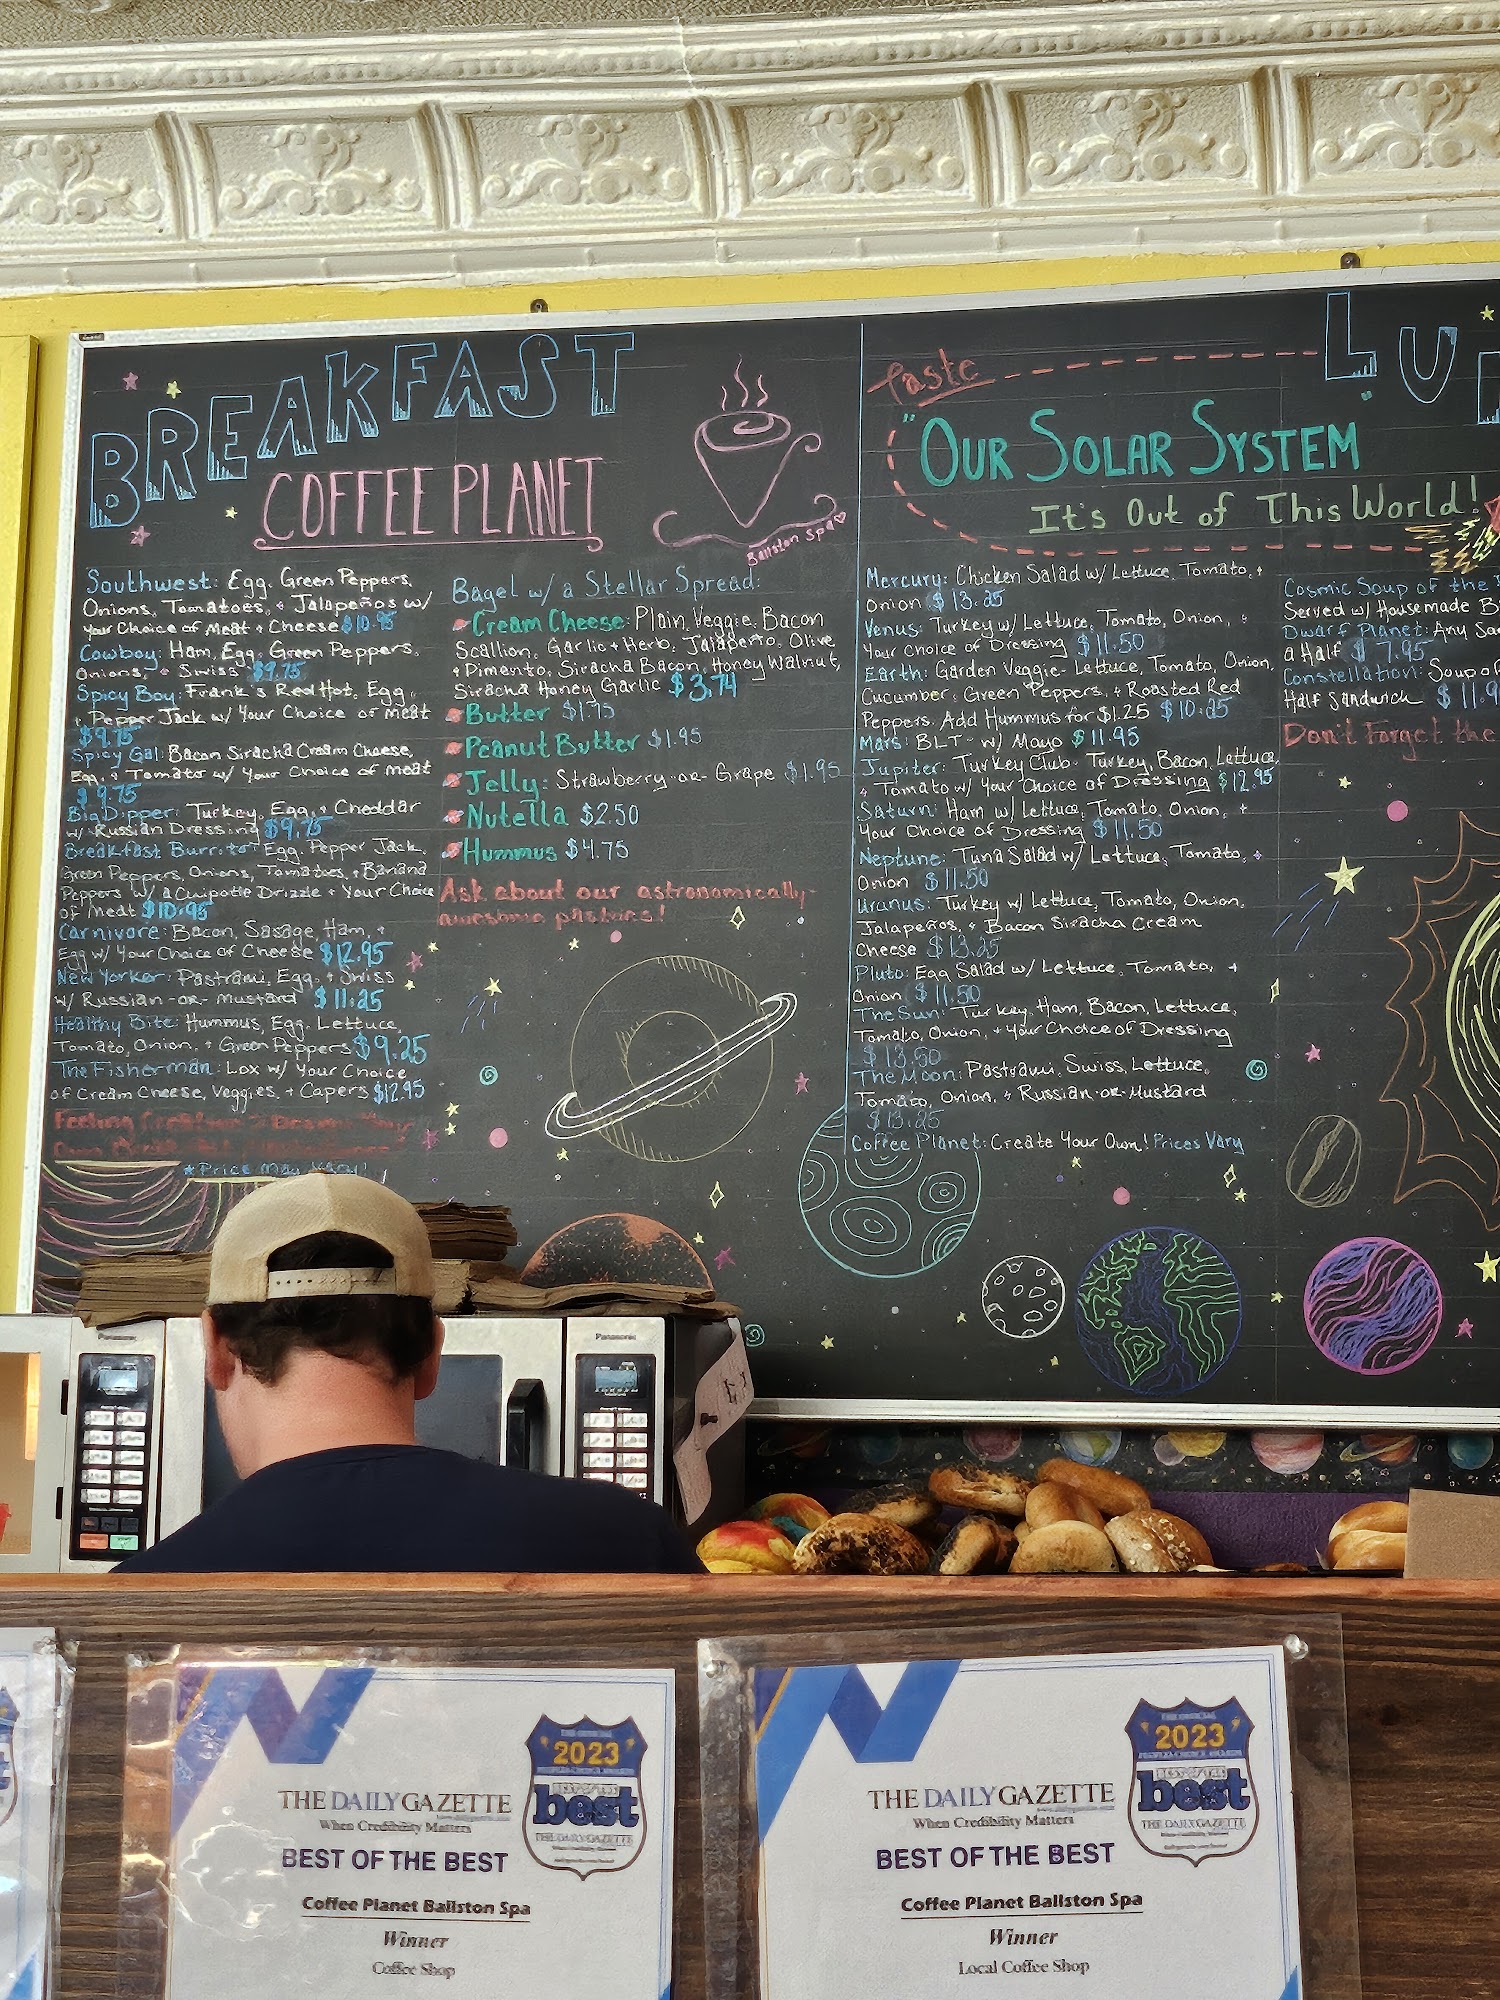 BREAKFAST
COFFEE PLANET
Ballston Spa
Southwest: Egg, Green Peppers,
Onions, Tomatoes, + Jalapeños w/
Your Choice of Meat + Cheese $10.95
Cowboy: Ham, Egg, Green Peppers,
Onions, + Swiss $9.75
Spicy Boy: Frank's RedHot, Egg,
+ Pepper Jack w/ Your Choice of Meat
$9.75
Spicy Gal: Bacon Siracha Cream Cheese,
Egg, + Tomato w/ Your Choice of Meat
$9.75
Big Dipper: Turkey, Egg, + Cheddar
w/ Russian Dressing $9.75
Breakfast Burrito: Egg, Pepper Jack,
Green Peppers, Onions, Tomatoes, + Banana
Peppers w/ a Chipotle Drizzle + Your Choice
of Meat $10.95
Carnivore: Bacon, Sasage, Ham, +
Egg w/ Your Choice of Cheese $12.95
New Yorker: Pastrami, Egg, + Swiss
w/ Russian -or- Mustard $11.25
Healthy Bite: Hummus, Egg, Lettuce,
Tomato, Onion, + Green Peppers $9.25
The Fisherman: Lox w/ Your Choice
of Cream Cheese, Veggies, + Capers $12.95
Feeling Creative?
*Price May Vary!
Bagel w/ a Stellar Spread:
Cream Cheese: Plain, Veggie, Bacon
Scallion, Garlic + Herb, Jalapeño, Olive
+ Pimento, Siracha Bacon, Honey Walnut,
Siracha Honey Garlic $3.74
Butter $1.75
Peanut Butter $1.95
Jelly: Strawberry -or- Grape $1.95
Nutella $2.50
Hummus $4.75
Ask about our astronomically
awesome pastries!
Taste
"OUR SOLAR SYSTEM"
It's Out of This World!
Mercury: Chicken Salad w/ Lettuce, Tomato, +
Onion $13.25
Venus: Turkey w/ Lettuce, Tomato, Onion, +
Your Choice of Dressing $11.50
Earth: Garden Veggie- Lettuce, Tomato, Onion,
Cucumber, Green Peppers, + Roasted Red
Peppers. Add Hummus for $1.25 $10.25
Mars: BLT- w/ Mayo $11.95
Jupiter: Turkey Club- Turkey, Bacon, Lettuce,
+ Tomato w/ Your Choice of Dressing $12.95
Saturn: Ham w/ Lettuce, Tomato, Onion, +
Your Choice of Dressing $11.50
Neptune: Tuna Salad w/ Lettuce, Tomato, +
Onion $11.50
Uranus: Turkey w/ Lettuce, Tomato, Onion,
Jalapeños, + Bacon Siracha Cream
Cheese $13.25
Pluto: Egg Salad w/ Lettuce, Tomato, +
Onion $11.50
The Sun: Turkey, Ham, Bacon, Lettuce,
Tomato, Onion, + Your Choice of Dressing
$13.50
The Moon: Pastrami, Swiss, Lettuce,
Tomato, Onion, + Russian -or- Mustard
$13.25
Coffee Planet: Create Your Own! Prices Vary
LU
Cosmic Soup of the
Served w/ Housemade
Dwarf Planet: Any
a Half $7.95
Constellation: Soup
Half Sandwich $11.9
Don't Forget the
Panasonic
Panasonic
2023
best
THE DAILY GAZETTE
THE DAILY GAZETTE
When Credibility Matters
BEST OF THE BEST
Coffee Planet Ballston Spa
Winner
Coffee Shop
2023
best
THE DAILY GAZETTE
THE DAILY GAZETTE
When Credibility Matters
BEST OF THE BEST
Coffee Planet Ballston Spa
Winner
Local Coffee Shop